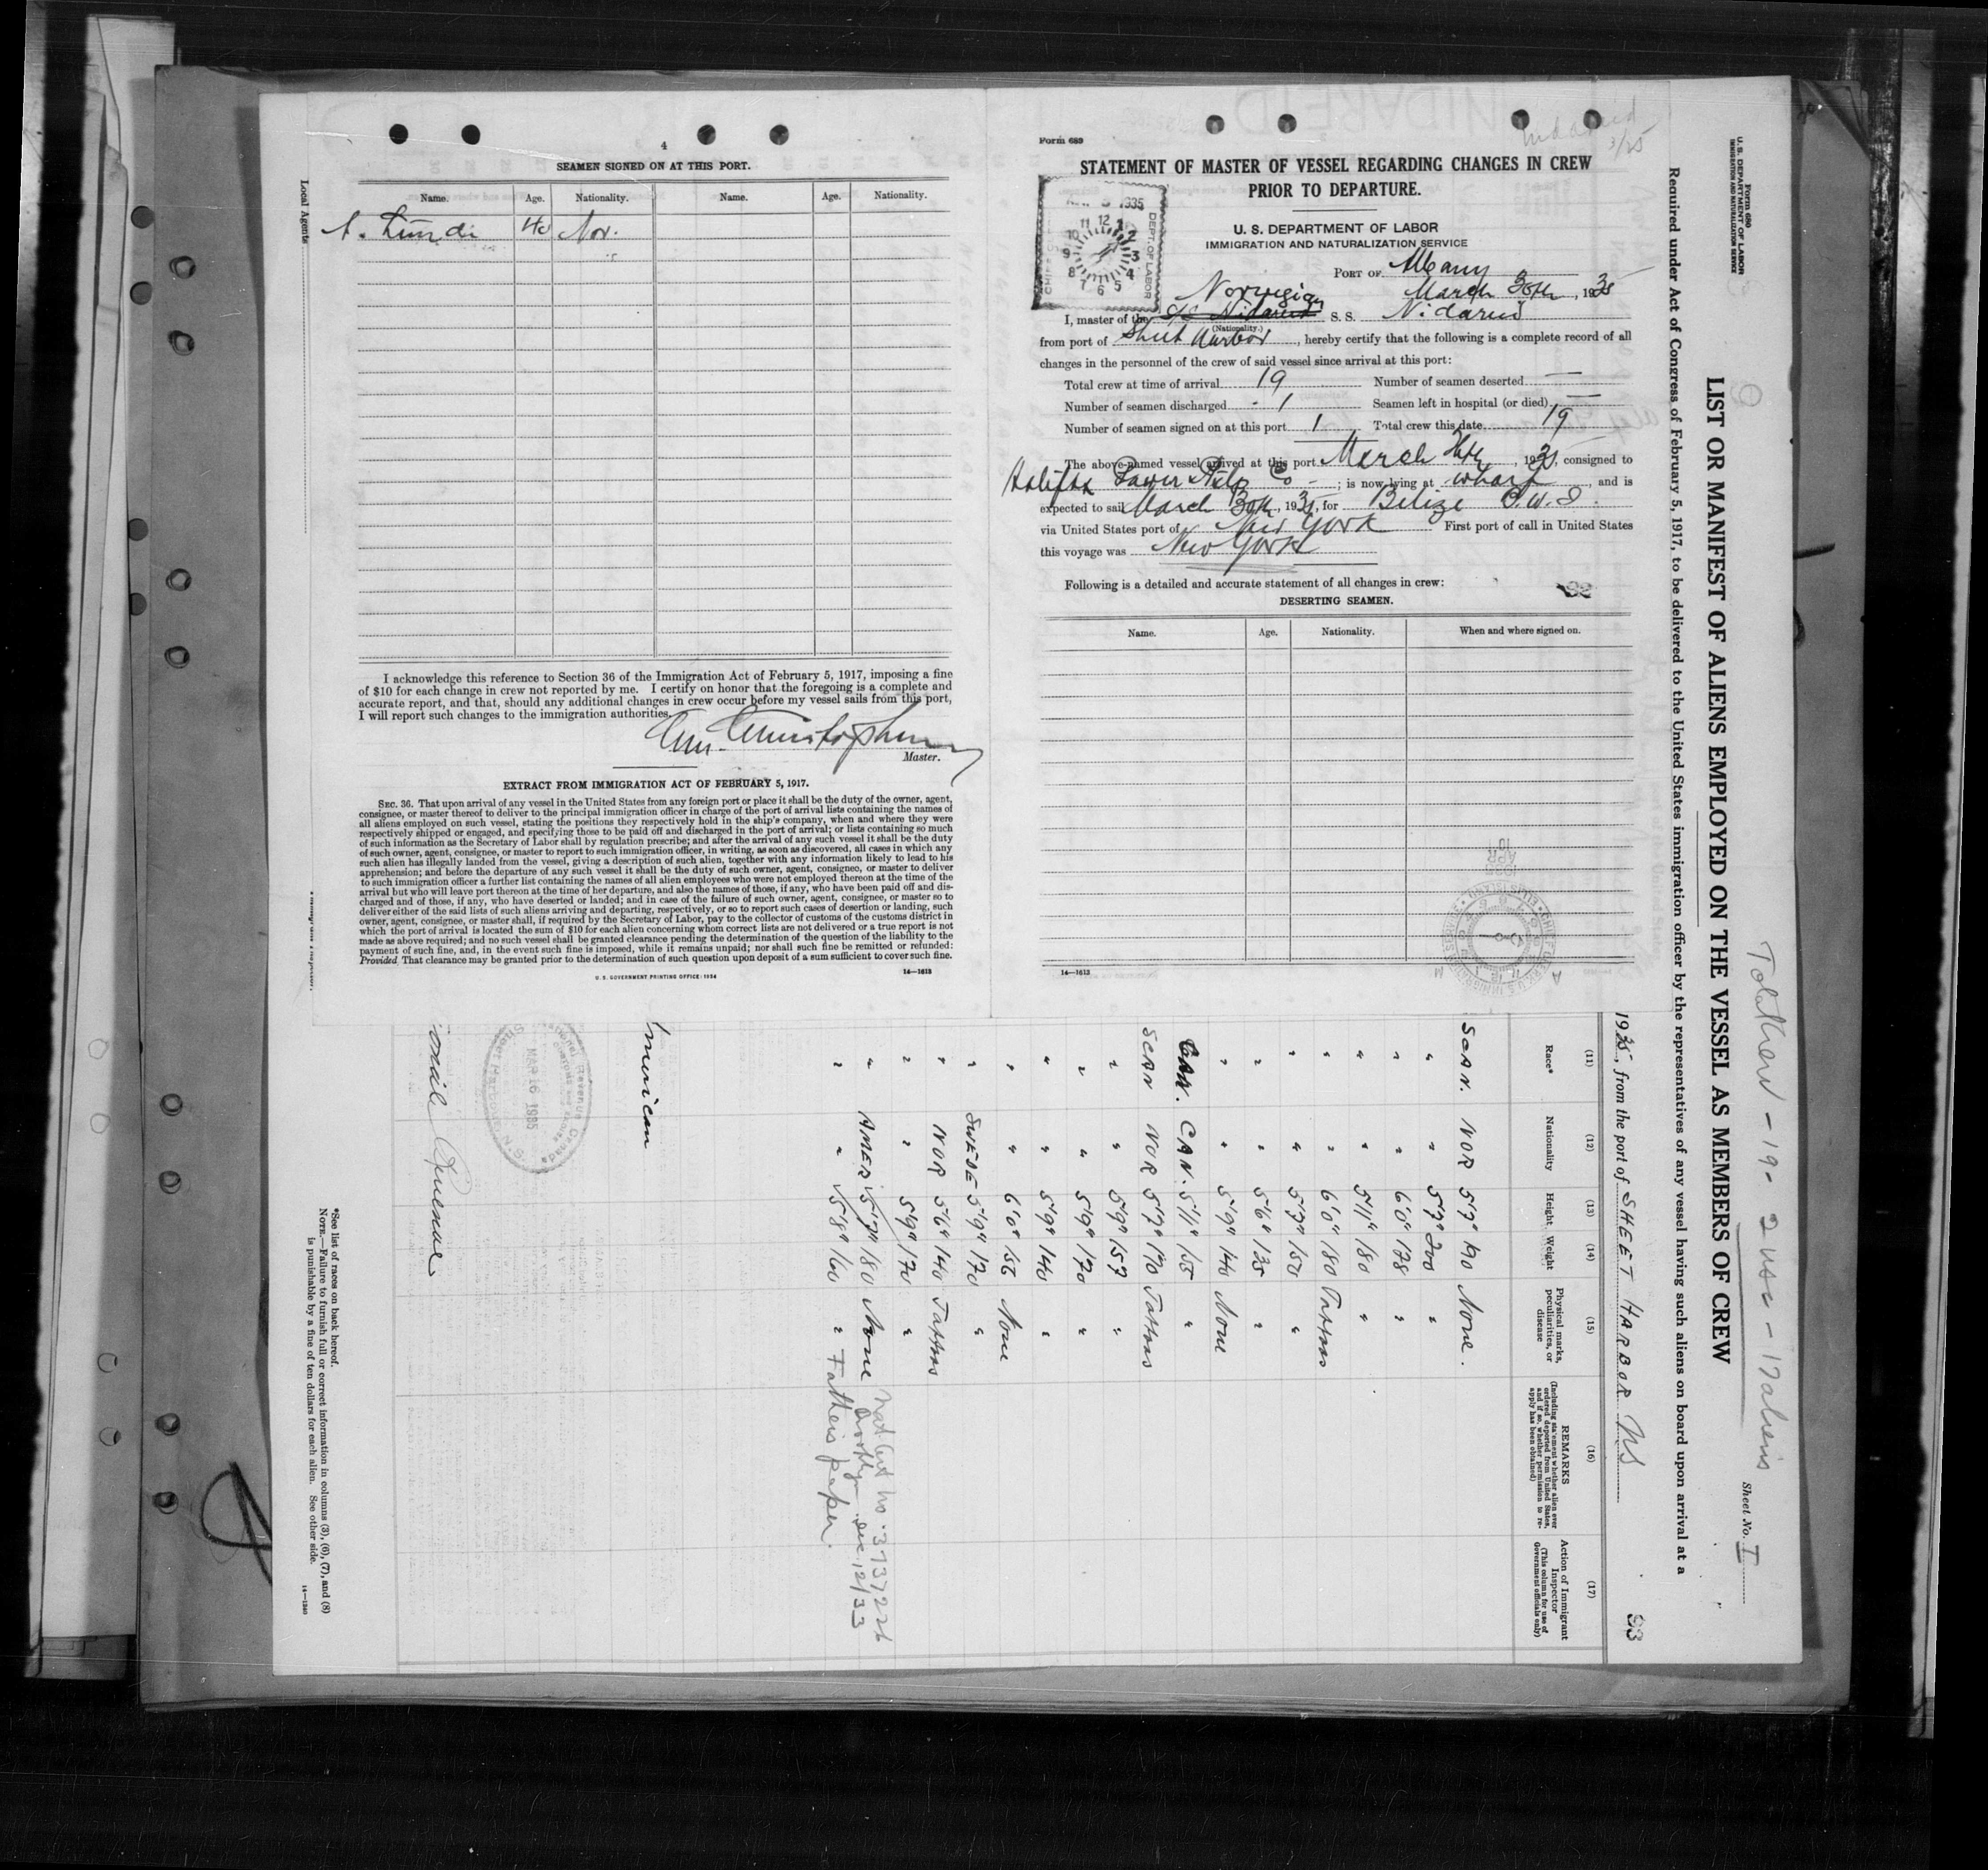 4
SEAMEN SIGNED ON AT THIS PORT.
Name. Age. Nationality. Name. Age. Nationality.
A. Lunde 40 Nor.
I acknowledge this reference to Section 36 of the Immigration Act of February 5, 1917, imposing a fine
of $10 for each change in crew not reported by me. I certify on honor that the foregoing is a complete and
accurate report, and that, should any additional changes in crew occur before my vessel sails from this port,
I will report such changes to the immigration authorities.
Master.
EXTRACT FROM IMMIGRATION ACT OF FEBRUARY 5, 1917.
SEC. 36. That upon arrival of any vessel in the United States from any foreign port or place it shall be the duty of the owner, agent,
consignee, or master thereof to deliver to the principal immigration officer in charge of the port of arrival lists containing the names of
all aliens employed on such vessel, stating the positions they respectively hold in the ship's company, when and where they were
respectively shipped or engaged, and specifying those to be paid off and discharged in the port of arrival; or lists containing so much
of such information as the Secretary of Labor shall by regulation prescribe; and after the arrival of any such vessel it shall be the duty
of such owner, agent, consignee, or master to report to such immigration officer, in writing, as soon as discovered, all cases in which any
such alien has illegally landed from the vessel, giving a description of such alien, together with any information likely to lead to his
apprehension; and before the departure of any such vessel it shall be the duty of such owner, agent, consignee, or master to deliver
to such immigration officer a further list containing the names of all alien employees who were not employed thereon at the time of the
arrival but who will leave port thereon at the time of her departure, and also the names of those, if any, who have been paid off and dis-
charged and of those, if any, who have deserted or landed; and in case of the failure of such owner, agent, consignee, or master so to
deliver either of the said lists of such aliens arriving and departing, respectively, or so to report such cases of desertion or landing, such
owner, agent, consignee, or master shall, if required by the Secretary of Labor, pay to the collector of customs of the customs district in
which the port of arrival is located the sum of $10 for each alien concerning whom correct lists are not delivered or a true report is not
made as above required; and no such vessel shall be granted clearance pending the determination of the question of the liability to the
payment of such fine, and, in the event such fine is imposed, while it remains unpaid; nor shall such fine be remitted or refunded:
Provided, That clearance may be granted prior to the determination of such question upon deposit of a sum sufficient to cover such fine.
U. S. GOVERNMENT PRINTING OFFICE: 1934 14—1613
Form 689
STATEMENT OF MASTER OF VESSEL REGARDING CHANGES IN CREW
PRIOR TO DEPARTURE.
U. S. DEPARTMENT OF LABOR
IMMIGRATION AND NATURALIZATION SERVICE
PORT OF Albany
March 30th, 1935
Norwegian
I, master of the S/S Nidareid S. S. Nidareid
(Nationality.)
from port of Sheet Harbor, hereby certify that the following is a complete record of all
changes in the personnel of the crew of said vessel since arrival at this port:
Total crew at time of arrival 19 Number of seamen deserted —
Number of seamen discharged - 1 Seamen left in hospital (or died) —
Number of seamen signed on at this port 1 Total crew this date 19
The above-named vessel arrived at this port March, 1935, consigned to
Halifax Power & Pulp Co -; is now lying at wharf, and is
expected to sail March 30th, 1935, for Belize B.W.I.
via United States port of New York First port of call in United States
this voyage was New York
Following is a detailed and accurate statement of all changes in crew:
DESERTING SEAMEN.
Name. Age. Nationality. When and where signed on.
14—1613
Form 680
U. S. DEPARTMENT OF LABOR
IMMIGRATION AND NATURALIZATION SERVICE
Sheet No. I
LIST OR MANIFEST OF ALIENS EMPLOYED ON THE VESSEL AS MEMBERS OF CREW
Required under Act of Congress of February 5, 1917, to be delivered to the United States immigration officer by the representatives of any vessel having such aliens on board upon arrival at a
1935, from the port of SHEET HARBOR NS
93
(11) (12) (13) (14) (15) (16) (17)
Race* Nationality Height Weight Physical marks, peculiarities, or disease REMARKS (Including statement whether alien ever ordered deported from United States, and if so, whether permission to reapply has been obtained) Action of Immigrant Inspector (This column for use of Government officials only)
SCAN. NOR 5'7" 190 None.
" " 5'7" 200 "
" " 6'0" 178 "
" " 5'11" 180 "
" " 6'0" 180 Tattoos
" " 5'7" 150 "
" " 5'6" 135 "
" " 5'9" 140 None
CAN. CAN. 5'11" 155 "
SCAN NOR 5'7" 170 Tattoos
" " 5'9" 157 "
" " 5'9" 170 "
" " 5'9" 140 "
" " 6'0" 156 None
" SWEDE 5'9" 170 "
" NOR 5'6" 140 Tattoos
" " 5'9" 170 "
" AMER 5'7" 180 None
" " 5'8" 160 " Father's paper.
American
MAR 16 1935
*See list of races on back hereof.
NOTE.—Failure to furnish full or correct information in columns (3), (6), (7), and (8)
is punishable by a fine of ten dollars for each alien. See other side.
14—1240
Local Agents